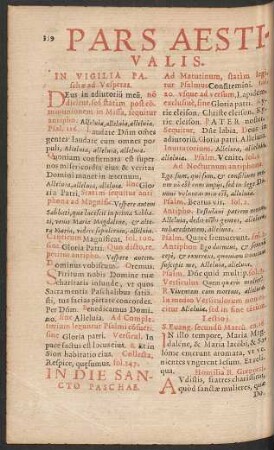 319
PARS AESTI-
VALIS.
IN VIGILIA PA-
schæ ad Vesperas.
DEus in adiutoriũ meũ, nõ
dicitur, sed statim post cõ-
munionem in Missa, sequitur
antiphona. Alleluia, alleluia, alleluia.
Psal. 116.
Laudate Dñm omnes
gentes: laudate eum omnes po-
puli. Alleluia, alleluia, alleluia.
Quoniam confirmata est super
nos misericordia eius: & veritas
Domini manet in æternum.
Alleluia, alleluia, alleluia. sine Glo-
ria Patri,
Vespere autem
sabbati, quæ lucescit in prima Sabba-
ti, venit Maria Magdalene, & alte-
ra Maria, videre sepulchrum, alleluia.
Canticum Magnificat, fol. 100.
sine Gloria Patri.
Vespere autem.
Dominus vobiscum. Oremus.
SPiritum nobis Domine tuæ
charitatis infunde, vt quos
Sacramentis Paschalibus satiasti,
tua facias pietate concordes.
Per Dñm. Benedicamus Domi-
no, sine Alleluia. Ad Comple-
torium leguntur Psalmi consueti.
sine Gloria patri. Versicul. In
pace factus est locus eius. R. Et in
Sion habitatio eius. Collecta,
Respice, quæsumus. fol. 147.
IN DIE SAN-
CTO PASCHAE.
Ad Matutinum, statim legi-
tur Psalmus Confitemini. fol.
20. vsque ad versum,
exclusiuè, sine Gloria patri. Kyrie
eleison. Christe eleison. Kyrie
eleison. PATER noster.
Sequitur, Dñe labia. Deus in
adiutorium. Gloria Patri.
Alleluia, alleluia,
alleluia. Psalm. Venite. fol.
Ad Nocturnum antiphona.
Ego sum, qui sum, & consilium me-
um non est cum impijs, sed in lege
Domini voluntas mea est, alleluia.
Psalm. Beatus vir. fol. 2.
Antiphon. Postulaui patrem meum,
alleluia: dedit mihi gentes, alleluia,
in hæreditatem, alleluia.
Psalm. Quare fremuerunt. fol. 2.
Antiphon. Ego dormiui, & somnum
cepi, & exurrexi, quoniam Dominus
suscepit me, Alleluia, alleluia.
Psalm. Dñe quid multip. fol. 3.
sine alleluia.
Lectio j.
S. Euang. secundũ Marcũ.
IN illo tempore, Maria Mag-
dalene, & Maria Iacobi, & Sa-
lome emerunt aromata, vt ve-
nientes vngerent Iesum. Et reli-
qua. Homilia B. Gregorij.
AVdistis, fratres charissimi,
quòd sanctæ mulieres, quæ
Do-